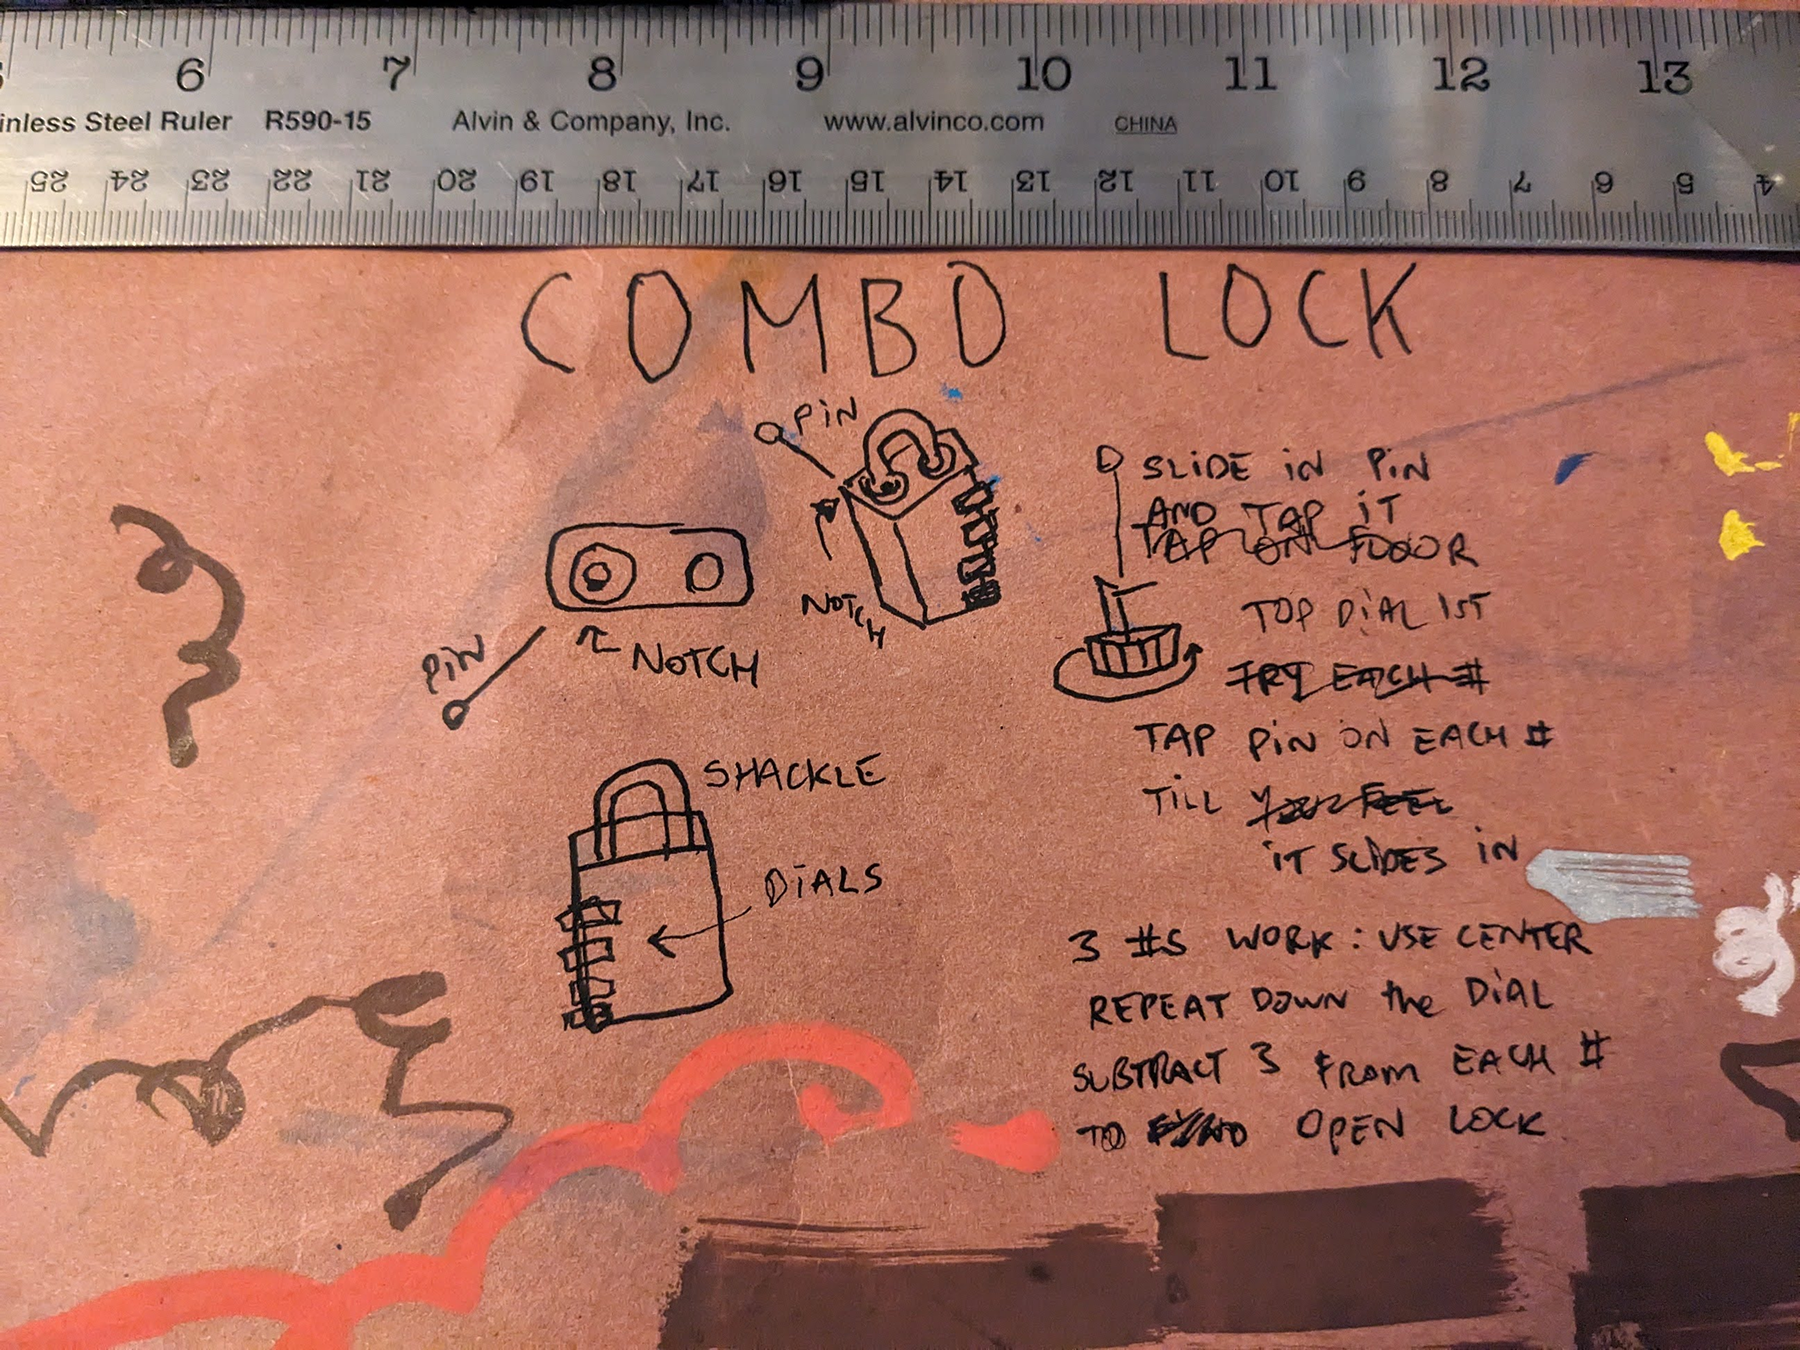 6 7 8 9 10 11 12 13
inless Steel Ruler R590-15 Alvin & Company, Inc. www.alvinco.com CHINA
25 24 23 22 21 20 19 18 17 16 15 14 13 12 11 10 9 8 7 6 5 4
COMBO LOCK
PiN
NOTCH
PiN
NOTCH
SHACKLE
DiALS
SLiDE iN PiN
AND TAP iT
TAP ON FLOOR
TOP DiAL 1ST
TRY EACH #
TAP PiN ON EACH #
TiLL YOU FEEL
iT SLiDES iN
3 #S WORK: USE CENTER
REPEAT DOWN the DiAL
SUBTRACT 3 FROM EACH #
TO OPEN LOCK